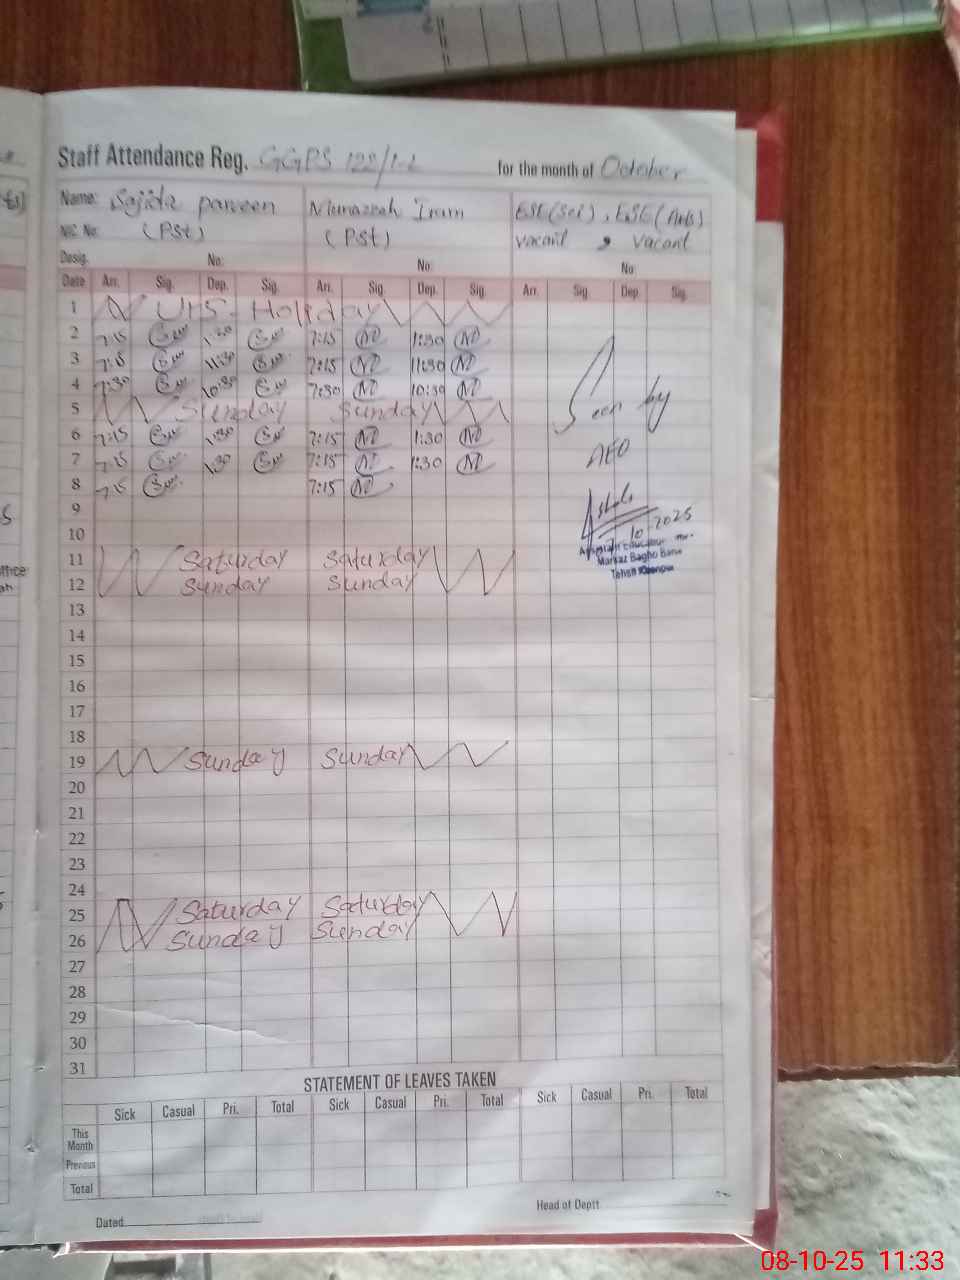 Staff Attendance Reg. GGPS 122/1-L for the month of October
Name: Sajida parveen Munazzah Iram ESE(Sci), ESE(Arts)
NIC No: (PST) (PST) vacant , vacant
Desig. No: No: No:
Date Arr. Sig. Dep. Sig. Arr. Sig. Dep. Sig. Arr. Sig. Dep. Sig.
1 Urs Holiday
2 7:15 1:30 7:15 1:30
3 7:15 11:30 7:15 11:30
4 7:30 10:30 7:30 10:30
5 Sunday Sunday
Seen by
6 7:15 1:30 7:15 1:30
7 7:15 1:30 7:15 1:30
AEO
8 7:15 7:15
9
10
10-2025
Markaz Bagho Bahar
Tehsil Khanpur
11 Saturday Saturday
12 Sunday Sunday
13
14
15
16
17
18
19 Sunday Sunday
20
21
22
23
24
25 Saturday Saturday
26 Sunday Sunday
27
28
29
30
31
STATEMENT OF LEAVES TAKEN
Sick Casual Pri. Total Sick Casual Pri. Total Sick Casual Pri. Total
This Month
Previous
Total
Dated Head of Deptt
08-10-25 11:33